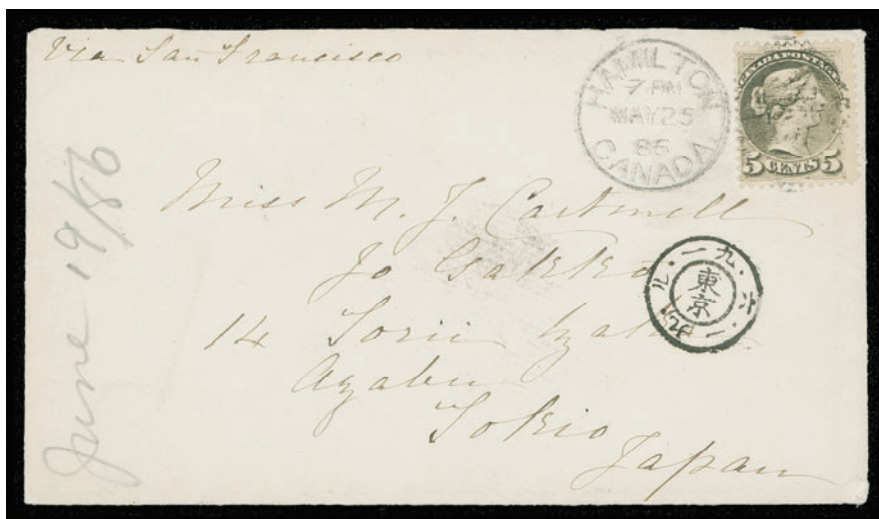 Via San Francisco
HAMILTON
7 PM
MAY 25
86
CANADA
CANADA POSTAGE
5 CENTS 5
Miss M. J. Cartmell
Jo Gakko
14 Torii
Azabu
Tokio
Japan
東京
June 19/86